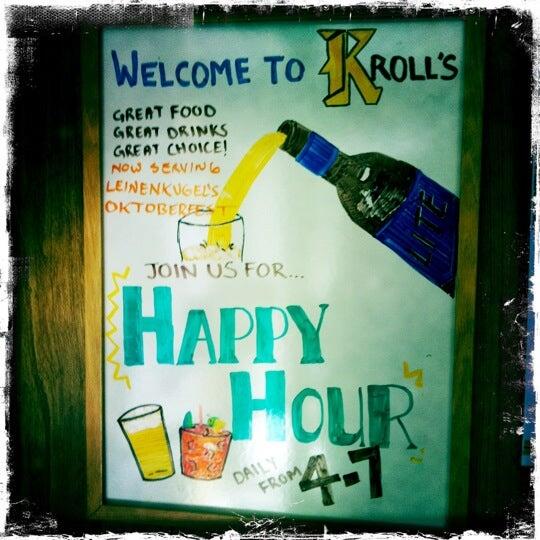 WELCOME TO KROLL'S
GREAT FOOD
GREAT DRINKS
GREAT CHOICE!
NOW SERVING
LEINENKUGEL'S
OKTOBERFEST
LITE
JOIN US FOR...
HAPPY
HOUR
DAILY
FROM 4-7